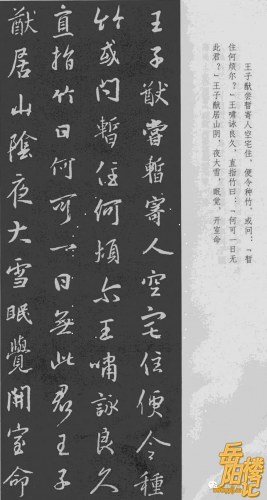 王子猷嘗暫寄人空宅住便令種
竹或问暫住何煩尔王嘯詠良久
直指竹曰何可一日無此君王子
猷居山陰夜大雪眠覺開室命
王子猷尝暂寄人空宅住，便令种竹。或问：“暂
住何烦尔？”王啸咏良久，直指竹曰：“何可一日无
此君？”王子猷居山阴，夜大雪，眠觉，开室命
岳阳楼记